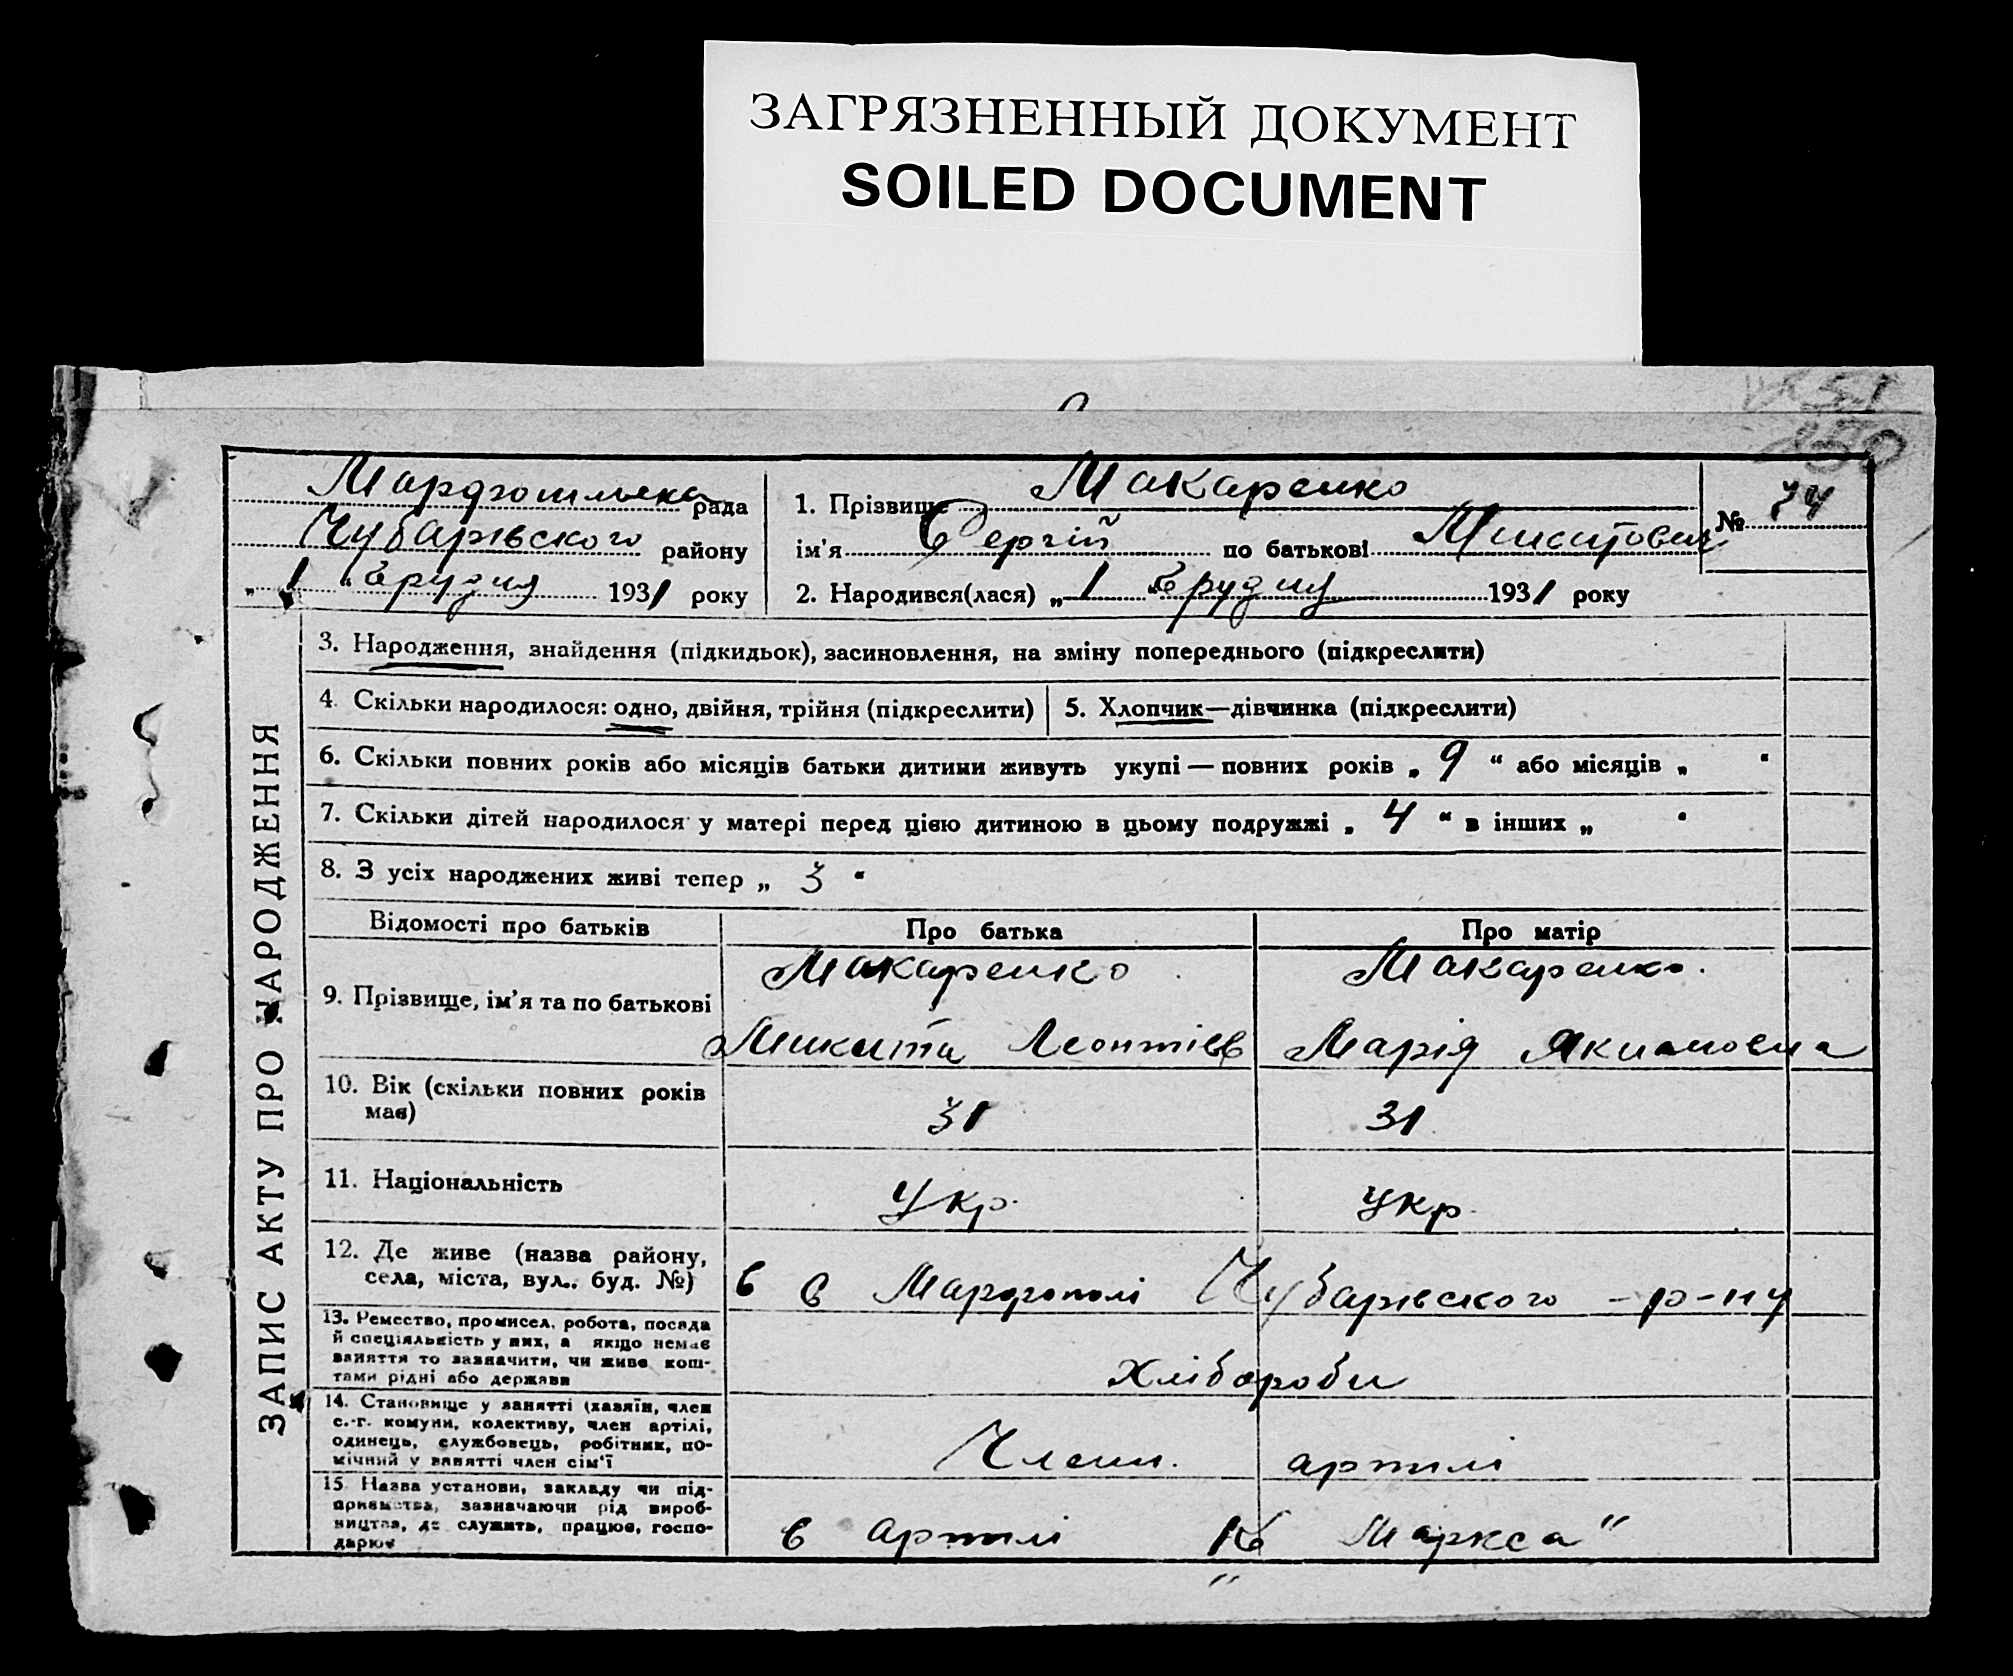 ЗАГРЯЗНЕННЫЙ ДОКУМЕНТ
SOILED DOCUMENT
250
Марфопильска рада
Чубарівського району
„ 1 “ Грудня 1931 року
1. Прізвище Макаренко
ім'я Сергій по батькові Микитович
№ 74
2. Народився(лася) „ 1 “ Грудня 1931 року
ЗАПИС АКТУ ПРО НАРОДЖЕННЯ
3. Народження, знайдення (підкидьок), засиновлення, на зміну попереднього (підкреслити)
4. Скільки народилося: одно, двійня, трійня (підкреслити)
5. Хлопчик—дівчинка (підкреслити)
6. Скільки повних років або місяців батьки дитини живуть укупі — повних років „ 9 “ або місяців „ “
7. Скільки дітей народилося у матері перед цією дитиною в цьому подружжі „ 4 “ в інших „ “
8. З усіх народжених живі тепер „ 3 “
Відомості про батьків
Про батька
Про матір
9. Прізвище, ім'я та по батькові
Макаренко
Микита Леонтієв
Макаренко
Марія Якимовна
10. Вік (скільки повних років
має)
31
31
11. Національність
Укр.
Укр.
12. Де живе (назва району,
села, міста, вул., буд. №)
в с Марфополі Чубарівского р-ну
13. Ремество, промисел, робота, посада
й спеціяльність у них, а якщо немає
заняття то зазначити, чи живе кош-
тами рідні або держави
Хлібороби
14. Становище у занятті (хазяїн, член
с.-г. комуни, колективу, член артілі,
одинець, службовець, робітник, по-
мічний у занятті член сім'ї
Члени артилі
15. Назва установи, закладу чи під-
приємства, зазначаючи рід вироб-
ництва, де служить, працює, госпо-
дарює
в артилі „К Маркса“